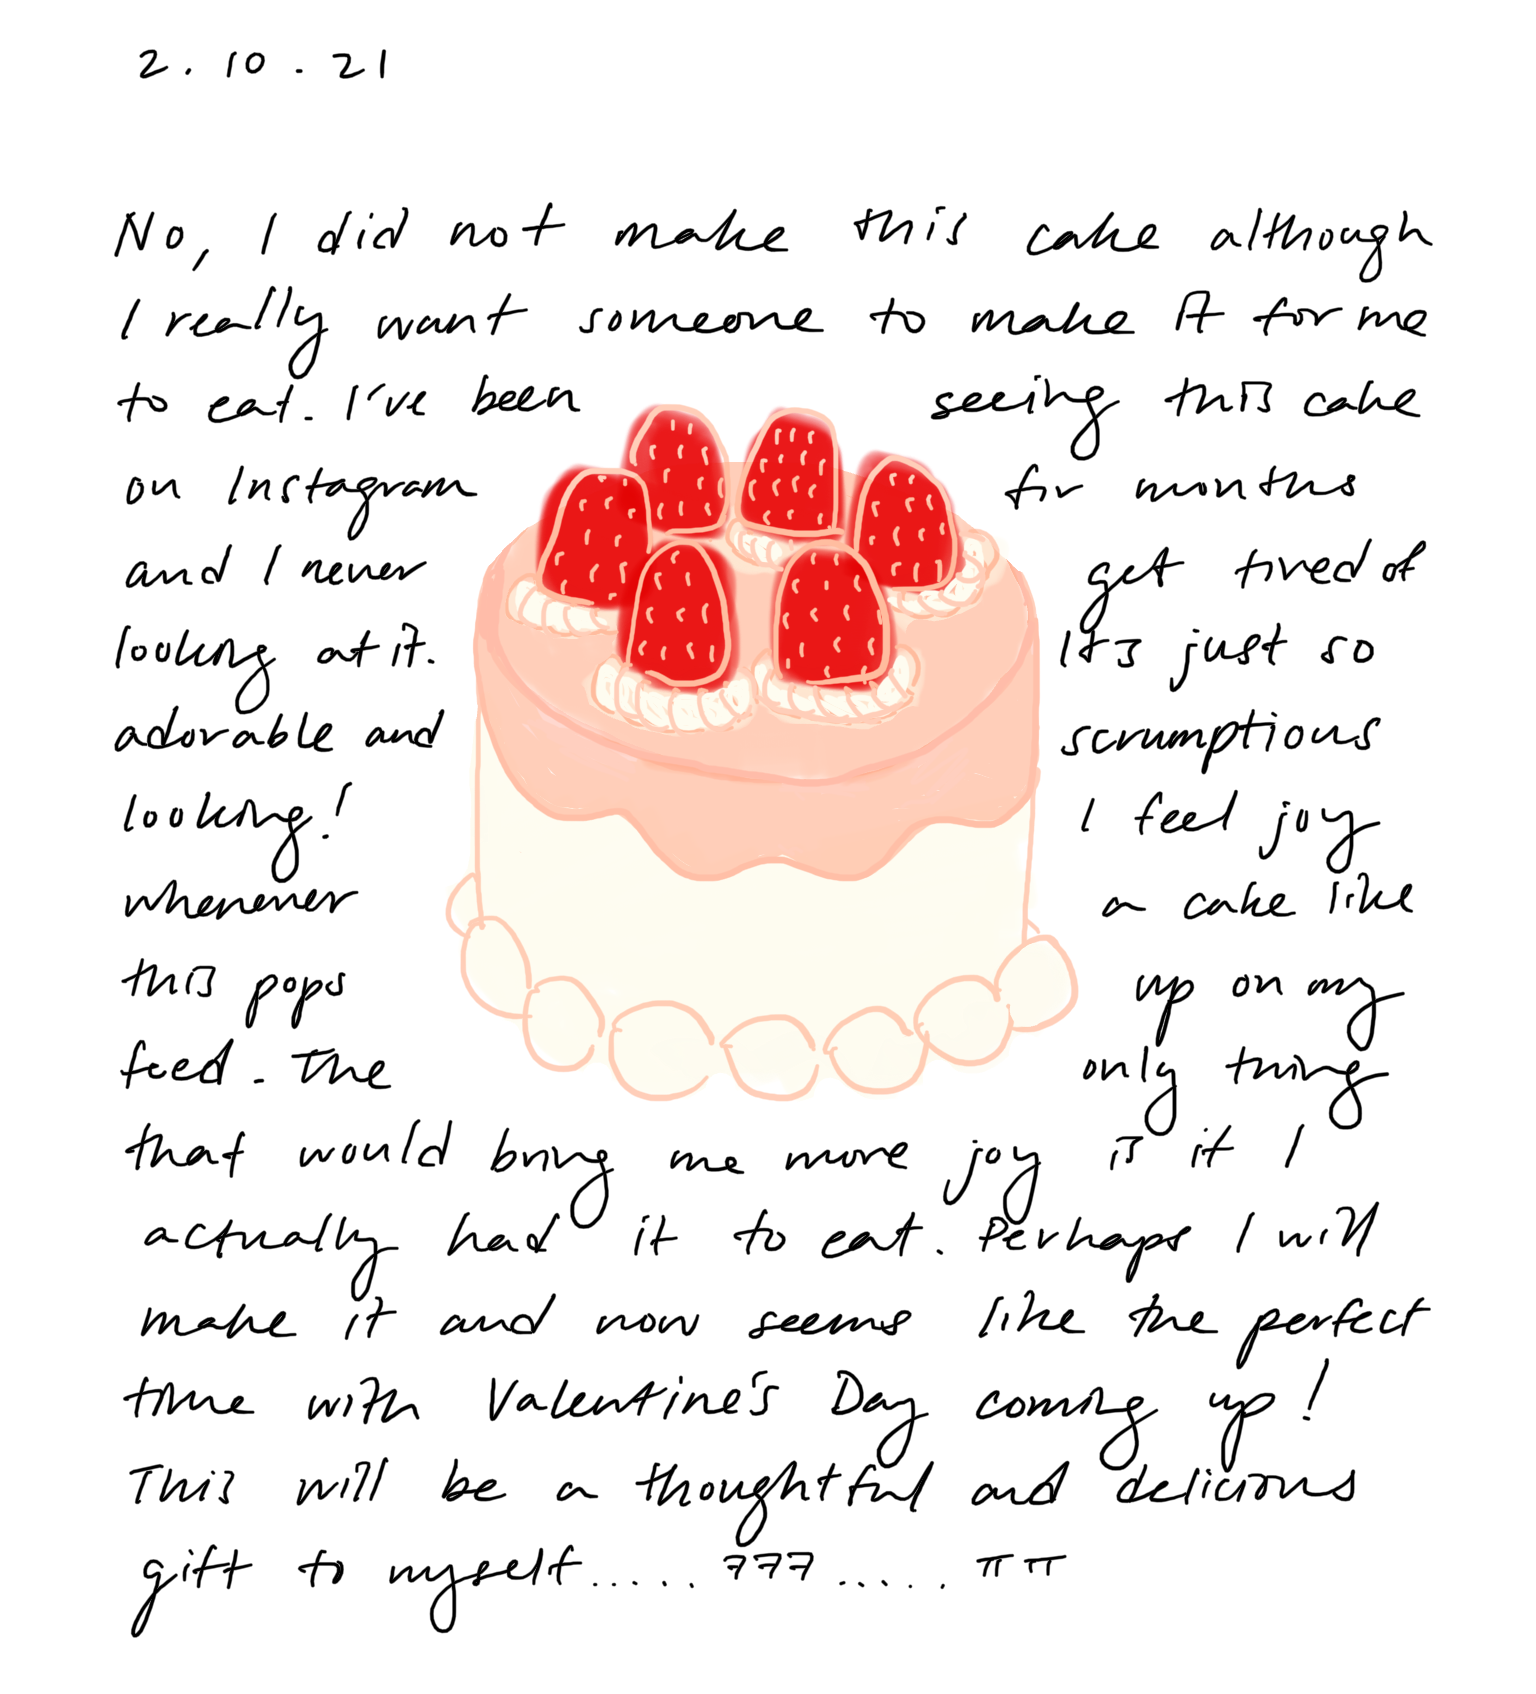 2.10.21
No, I did not make this cake although
I really want someone to make it for me
to eat. I've been seeing this cake
on Instagram for months
and I never get tired of
looking at it. It's just so
adorable and scrumptious
looking! I feel joy
whenever a cake like
this pops up on my
feed. The only thing
that would bring me more joy is if I
actually had it to eat. Perhaps I will
make it and now seems like the perfect
time with Valentine's Day coming up!
This will be a thoughtful and delicious
gift to myself..... ㅋㅋㅋ ..... ㅠㅠ